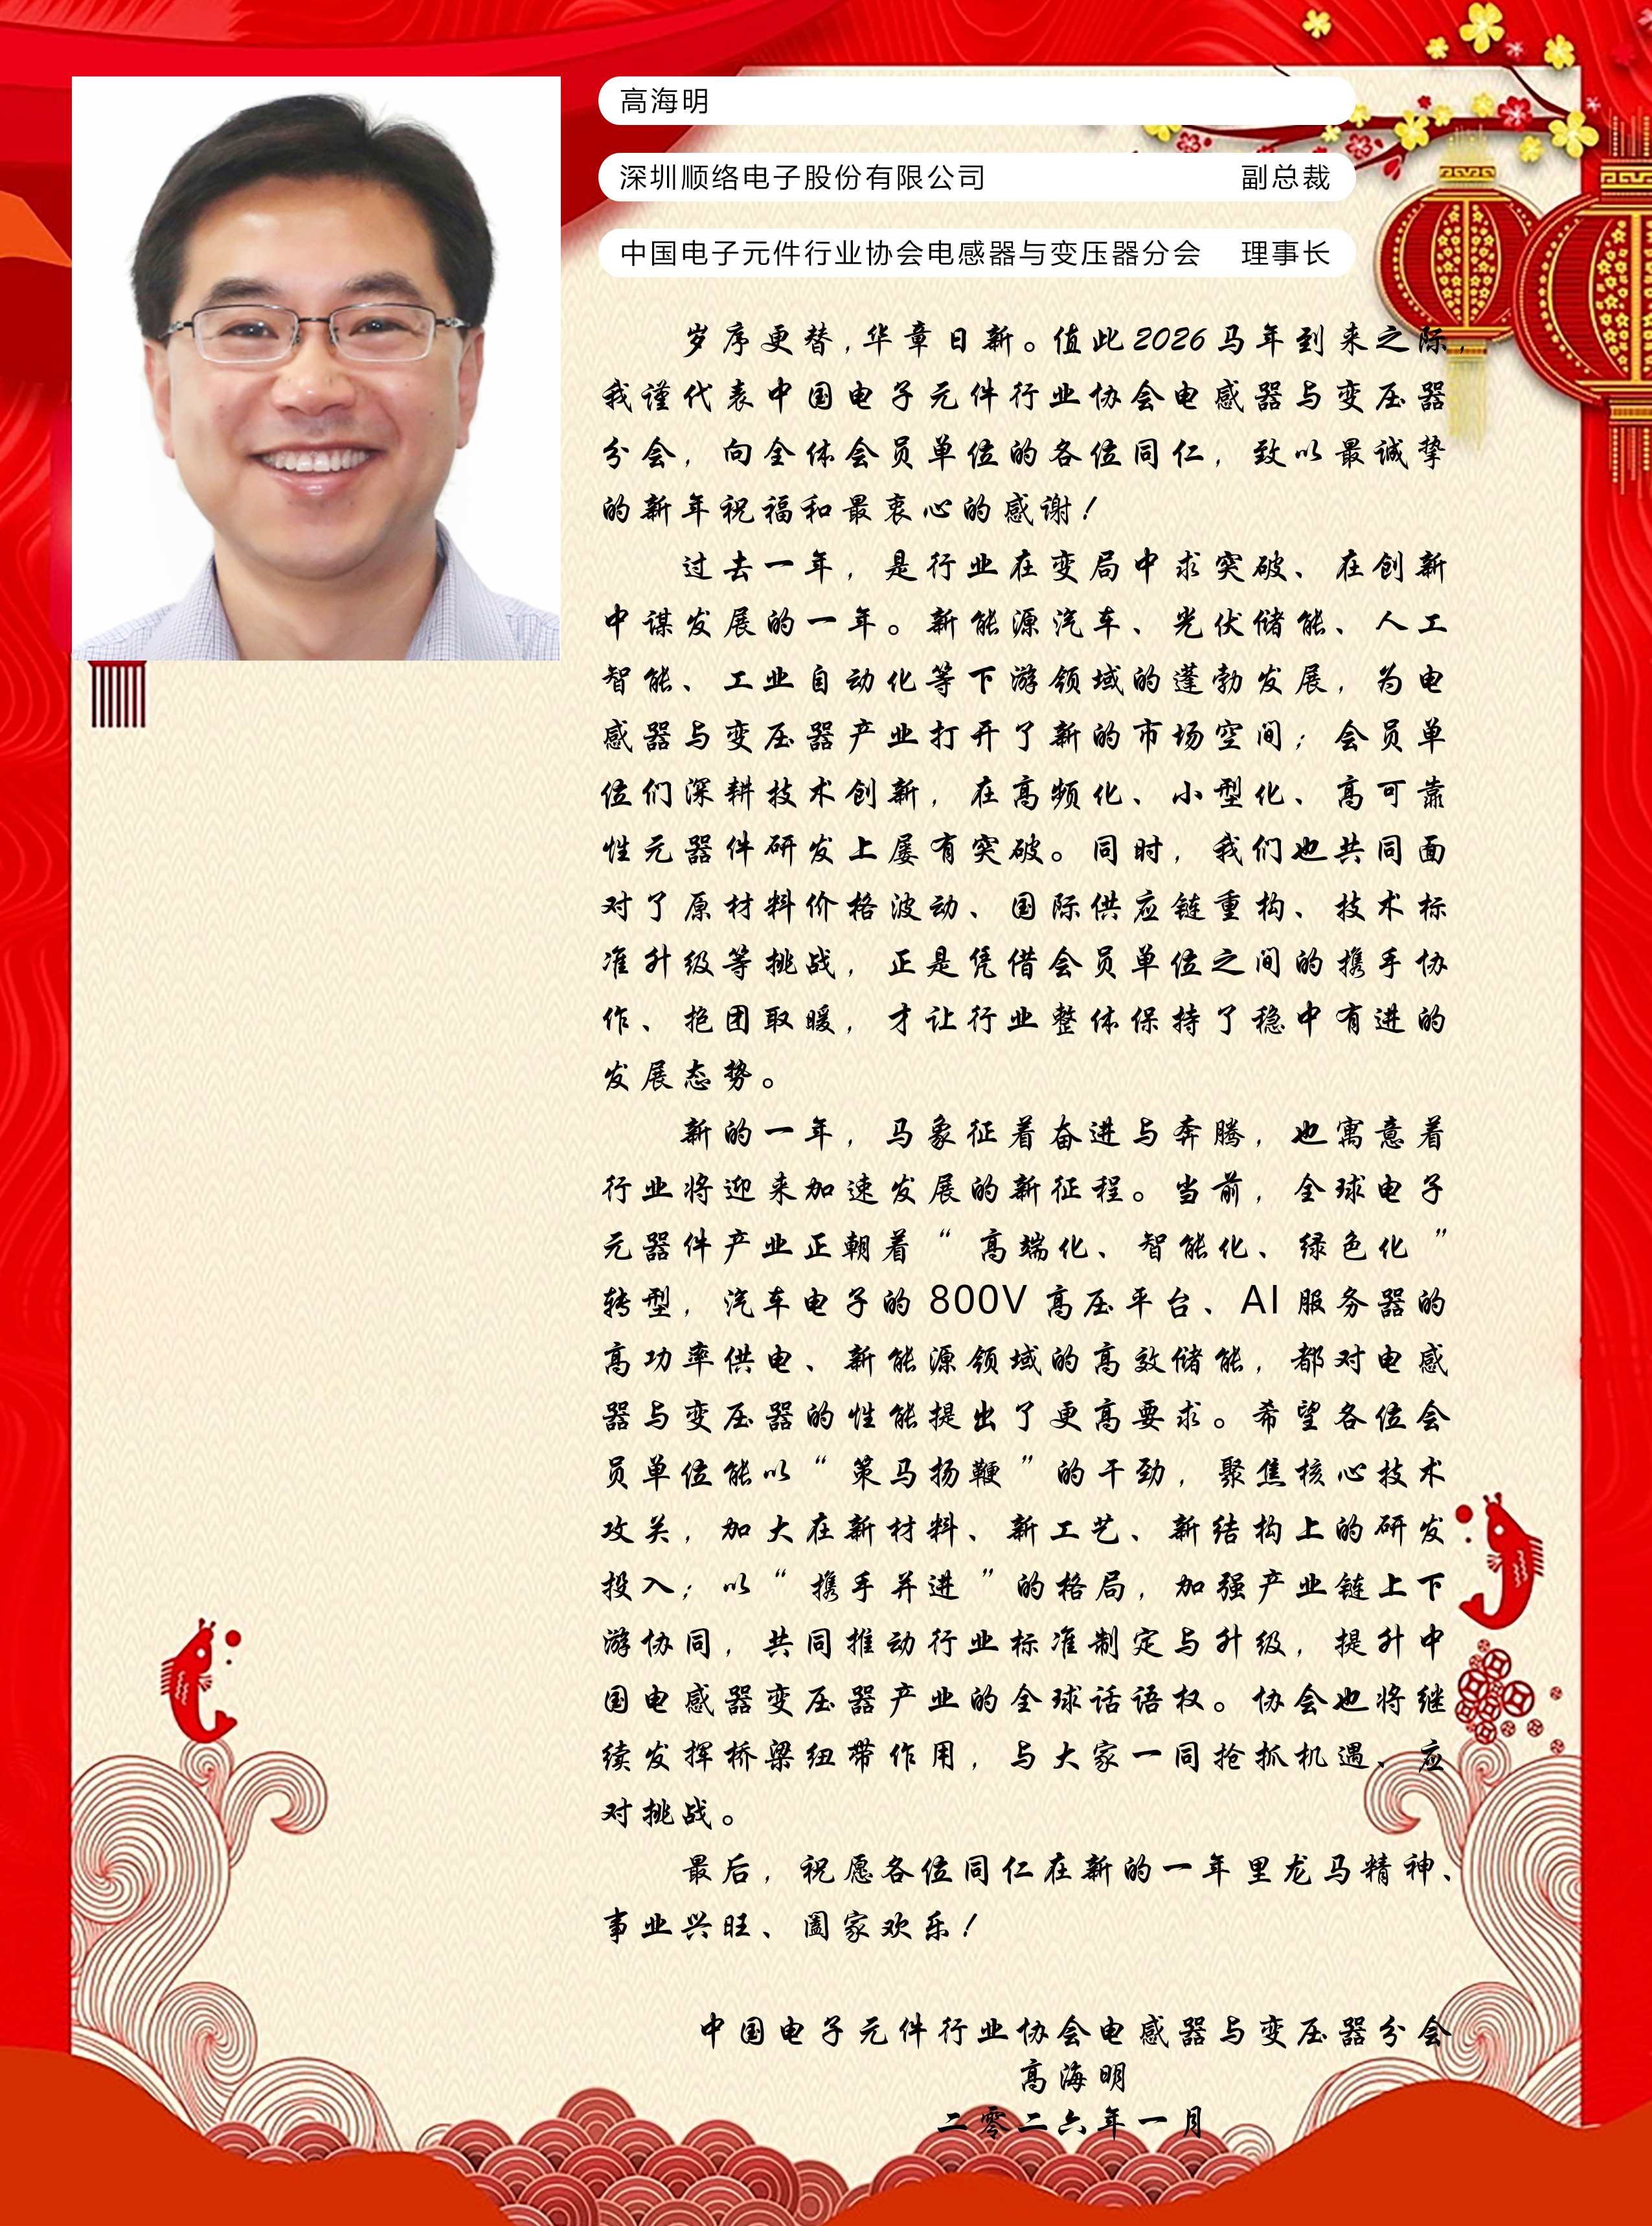 高海明
深圳顺络电子股份有限公司 副总裁
中国电子元件行业协会电感器与变压器分会 理事长
岁序更替,华章日新。值此2026马年到来之际,
我谨代表中国电子元件行业协会电感器与变压器
分会，向全体会员单位的各位同仁，致以最诚挚
的新年祝福和最衷心的感谢！
过去一年，是行业在变局中求突破、在创新
中谋发展的一年。新能源汽车、光伏储能、人工
智能、工业自动化等下游领域的蓬勃发展，为电
感器与变压器产业打开了新的市场空间；会员单
位们深耕技术创新，在高频化、小型化、高可靠
性元器件研发上屡有突破。同时，我们也共同面
对了原材料价格波动、国际供应链重构、技术标
准升级等挑战，正是凭借会员单位之间的携手协
作、抱团取暖，才让行业整体保持了稳中有进的
发展态势。
新的一年，马象征着奋进与奔腾，也寓意着
行业将迎来加速发展的新征程。当前，全球电子
元器件产业正朝着“高端化、智能化、绿色化”
转型，汽车电子的 800V 高压平台、AI 服务器的
高功率供电、新能源领域的高效储能，都对电感
器与变压器的性能提出了更高要求。希望各位会
员单位能以“策马扬鞭”的干劲，聚焦核心技术
攻关，加大在新材料、新工艺、新结构上的研发
投入；以“携手并进”的格局，加强产业链上下
游协同，共同推动行业标准制定与升级，提升中
国电感器变压器产业的全球话语权。协会也将继
续发挥桥梁纽带作用，与大家一同抢抓机遇、应
对挑战。
最后，祝愿各位同仁在新的一年里龙马精神、
事业兴旺、阖家欢乐！
中国电子元件行业协会电感器与变压器分会
高海明
二零二六年一月